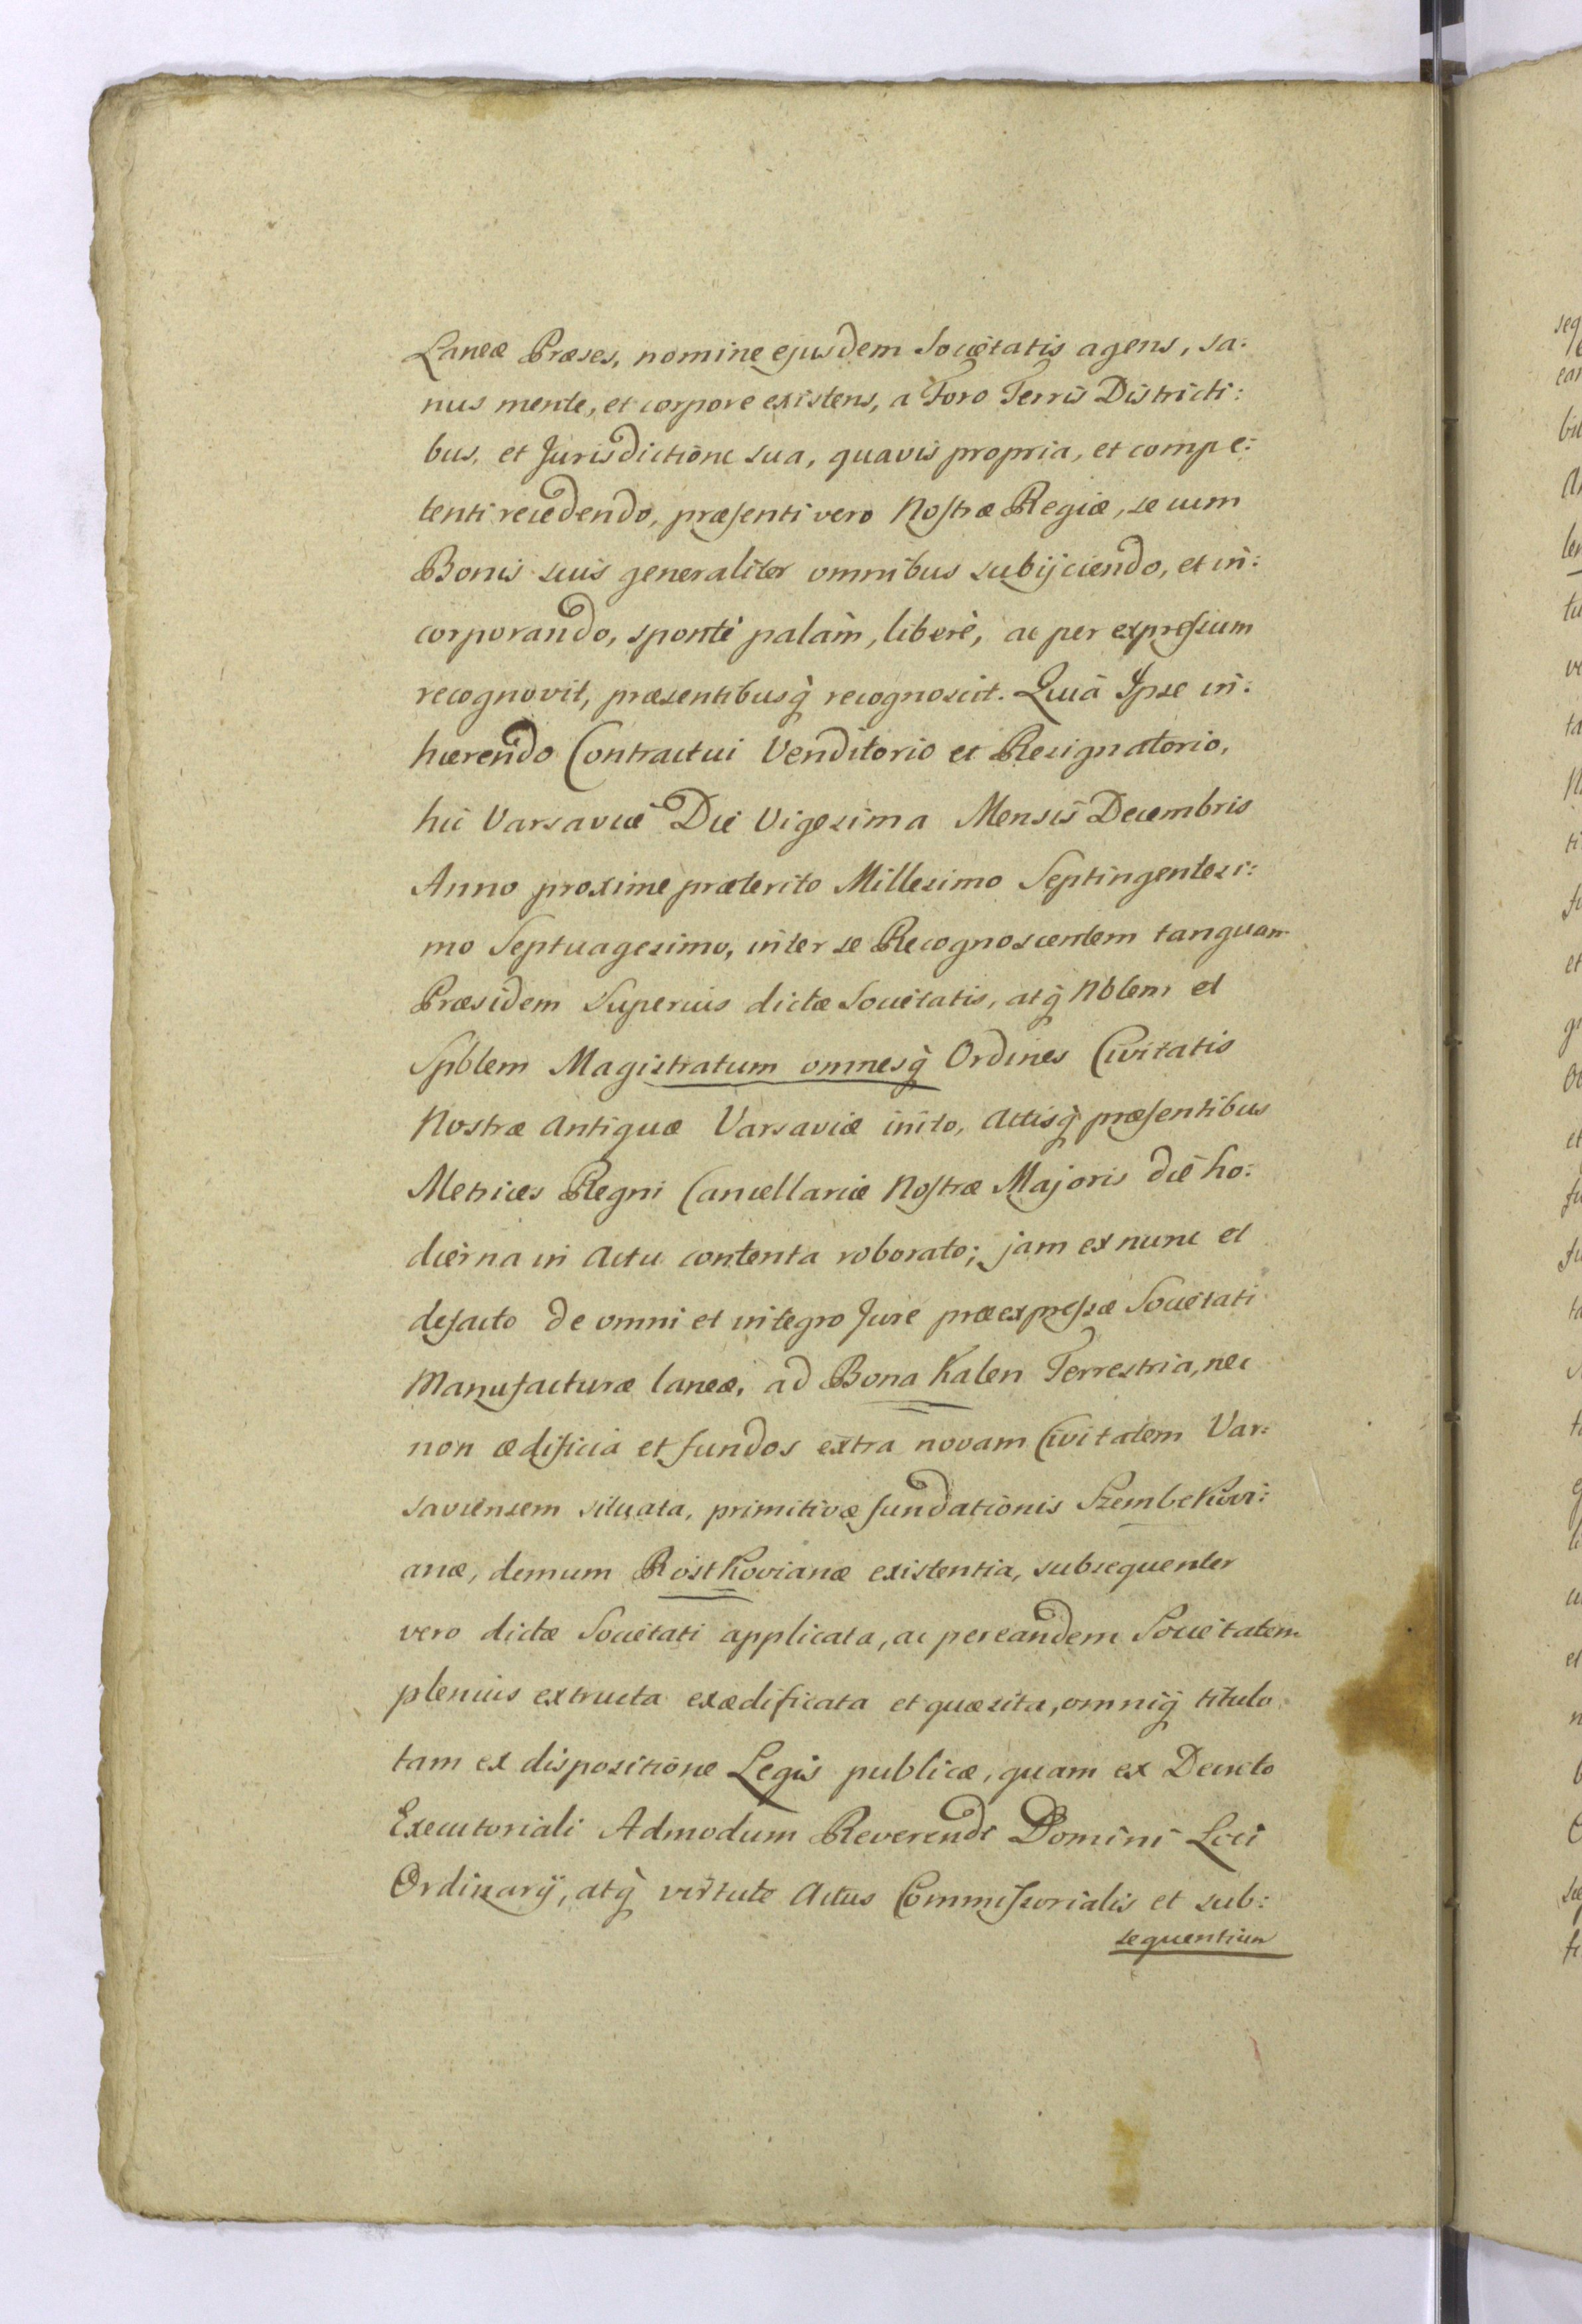 Laneæ Præses, nomine ejusdem Societatis agens, sa:
nus mente, et corpore existens, a Foro Terris Districti:
bus, et Jurisdictione sua, quavis propria, et compe:
tenti recedendo, præsenti vero Nostræ Regiæ, se cum
Bonis suis generaliter omnibus subijciendo, et in:
corporando, sponte palàm, liberè, ac per expressum
recognovit, præsentibusq̀ recognoscit. Quia Ipse in:
hærendo Contractui Venditorio et Resignatorio,
hic Varsaviæ Die Vigesima Mensis Decembris
Anno proxime præterito Millesimo Septingentesi:
mo Septuagesimo, inter se Recognoscentem tanquam
Præsidem Superius dictæ Societatis, atq̀ Nblem et
Spblem Magistratum omnesq̀ Ordines Civitatis
Nostræ Antiquæ Varsaviæ inito, Actisq̀ præsentibus
Metrices Regni Cancellariæ Nostræ Majoris die ho:
dierna in Actu contenta roborato; jam ex nunc et
defacto de omni et integro Jure præexpressæ Societati
Manufacturæ laneæ, ad Bona Kalen Terrestria, nec
non ædificia et fundos extra novam Civitatem Var:
saviensem situata, primitivæ fundationis Szembekovi:
anæ, demum Rostkovianæ existentia, subsequenter
vero dictæ Societati applicata, ac per eandem Societatem
plenius extructa exædificata et quæsita, omniq̀ titulo
tam ex dispositione Legis publicæ, quam ex Decreto
Executoriali Admodum Reverendi Domini Loci
Ordinarij, atq̀ virtute Actus Commissorialis et sub:
sequentium